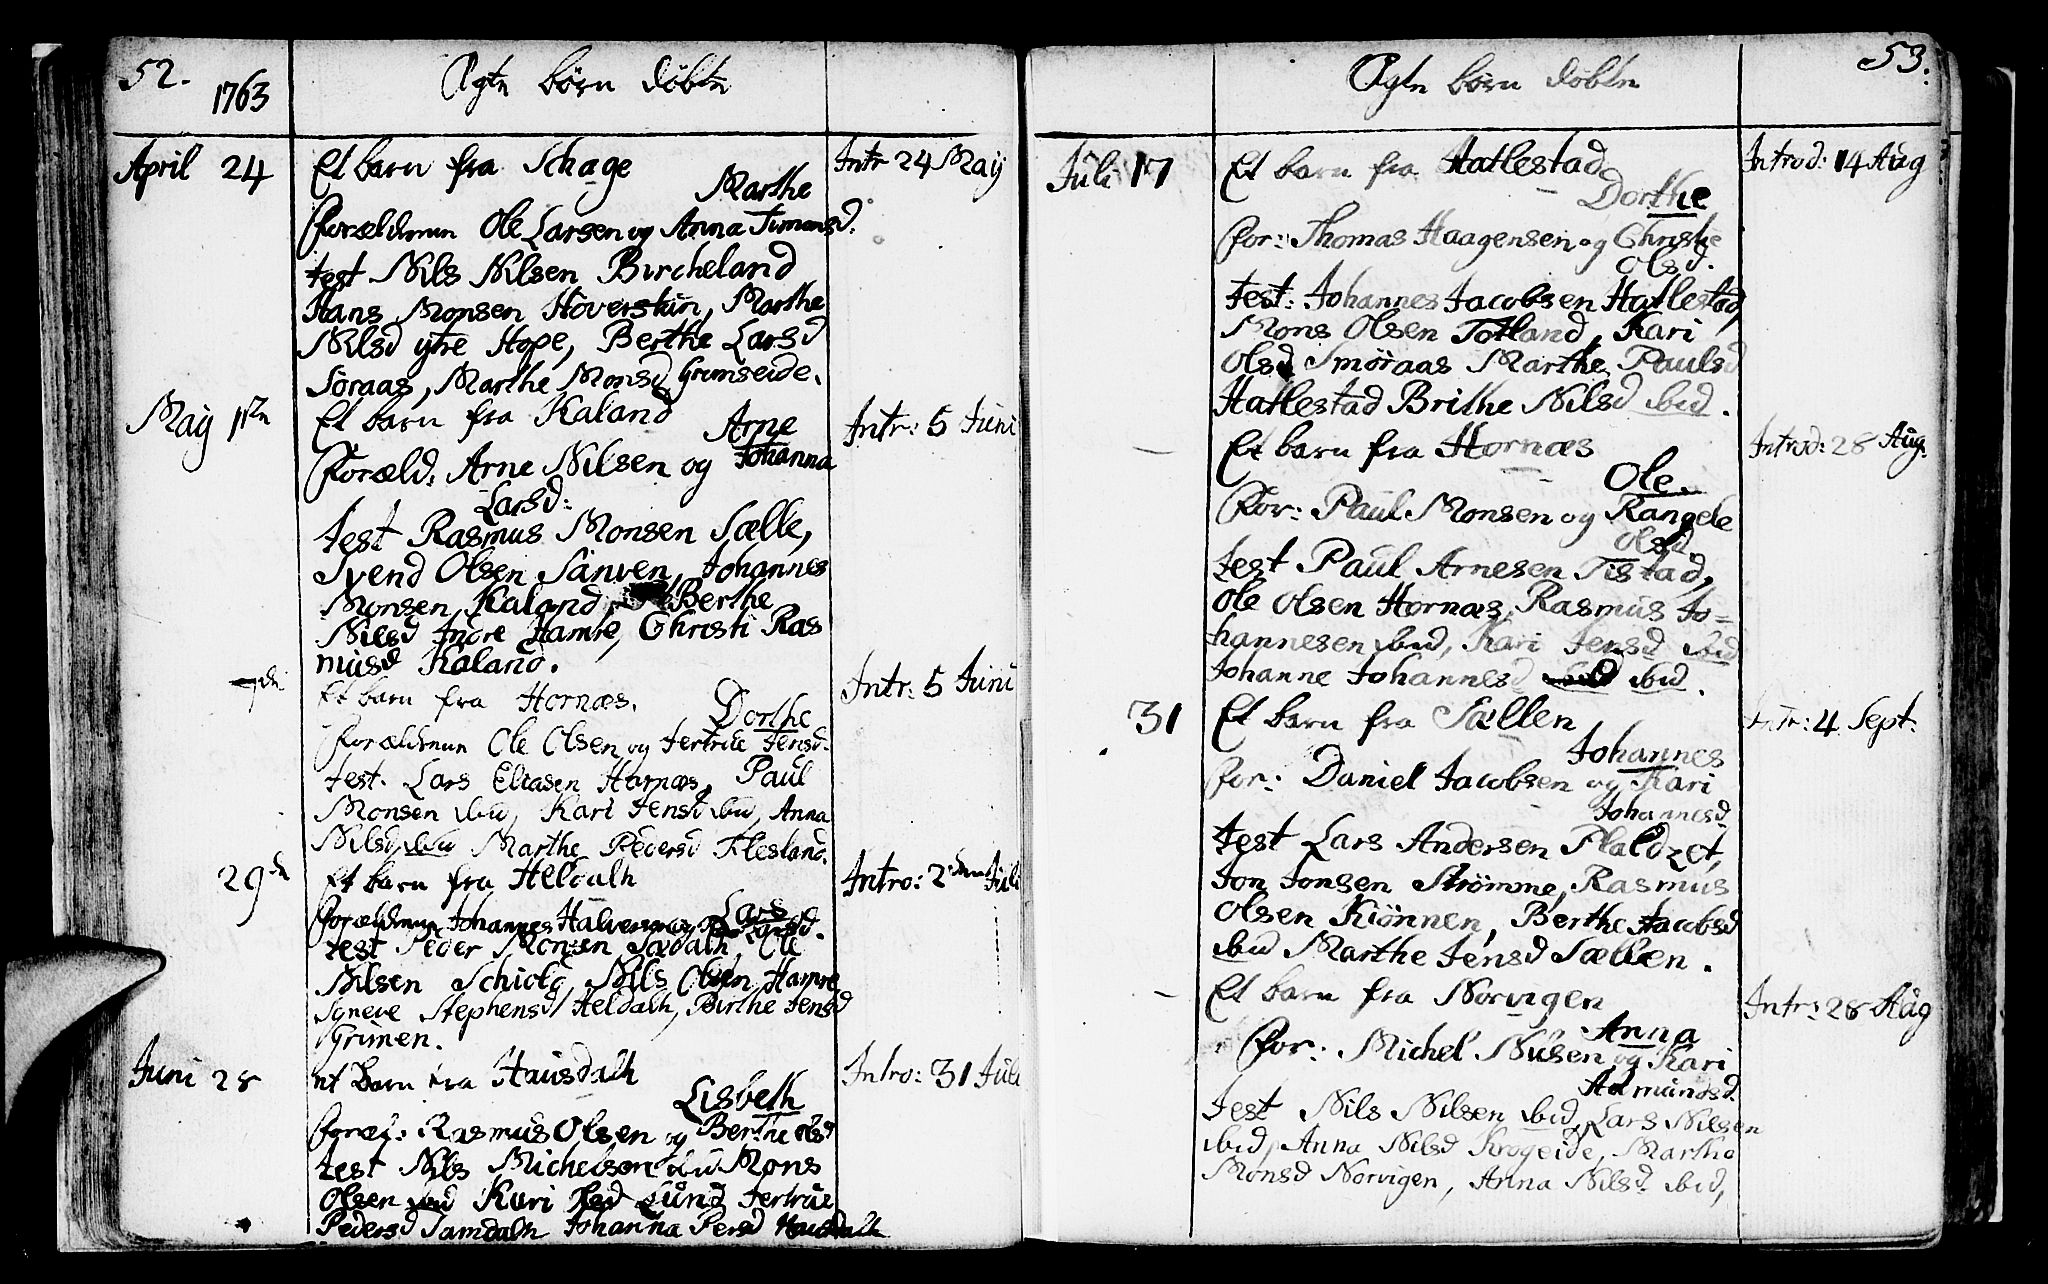 52.
1763
Ægte børn døbte
April 24
Et barn fra Schage
Intr 24 Maÿ
Marthe
Forældrenn Ole Larsen og Anna Timansd:
test Nils Nilsen Bircheland
Hans Monsen Höverstün, Marthe
Nilsd ytre Hope, Berthe Larsd
Söraas, Marthe Monsd Grimseide.
Maÿ 1ste
Et barn fra Kaland
Intr: 5 Juni
Arne
Foræld: Arne Nilsen og Johanna
Larsd:
test Rasmus Monsen Sælle,
Svend Olsen Sänven, Johannes
Monsen Kaland, Berthe
Nilsd Indre Hamre, Christi Ras
müsd Kaland.
7de
Et barn fra Hornæs.
Intr: 5 Juni
Dorthe
Forældrenn Ole Olsen og Jertrüe Jensd.
test. Lars Eliasen Hornæs, Paul
Monsen ibid, Kari Jensd ibid, Anna
Nilsd ibid Marthe Pedersd Flesland.
29de
Et barn fra Heldalh
Intro: 2den Jüli
Lars
Forældrenn Johannes Halversen og Larsd.
test Peder Monsen Sædalh, Ole
Nilsen Schiold, Nils Olsen Hamre
Sÿneve Stephensd Heldalh, Birthe Jensd
Grimen.
Juni 28
Et barn fra Haüsdalh
Intro: 31 Jüli
Lisbeth
Foræl: Rasmus Olsen og Berthe olsd
test Nils Michelsen ibid Mons
Olsen ibid Kari Lünd Jertrüe
Pedersd Samdalh Johanna Persd Haüsdalh
53.
Ægte børn døbte
Jüli 17
Et barn fra Hatlestad
Introd: 14 Aüg
Dorthe
For: Thomas Haagensen og Christie
Olsd.
test: Johannes Jacobsen Hatlestad,
Mons Olsen Totland, Kari
Olsd Smöraas Marthe Paulsd
Hatlestad Brithe Nilsd ibid.
—
Et barn fra Hornæs
Introd: 28 Aüg.
Ole.
For: Paul Monsen og Rangele
olsd.
test Paul Arnesen Tistad,
Ole Olsen Hornæs, Rasmus Jo=
hannesen ibid, Kari Jensd ibid
Johanne Johannesd ibid.
31
Et barn fra Sællen
Intr: 4 Sept.
Johannes
For: Daniel Jacobsen og Kari
Johannesd.
test Lars Andersen Pladzet,
Jon Jonsen Strömme, Rasmus
Olsen Kiönnen, Berthe Jacobsd
ibid Marthe Jensd Sællen.
—
Et barn fra Norvigen
Intr: 28 Aüg
Anna
For: Michel Nilsen og Kari
Admündsd.
test Nils Nilsen ibid, Lars Nilsen
ibid, Anna Nilsd Krogeide, Martha
Monsd Norvigen, Anna Nilsd ibid,